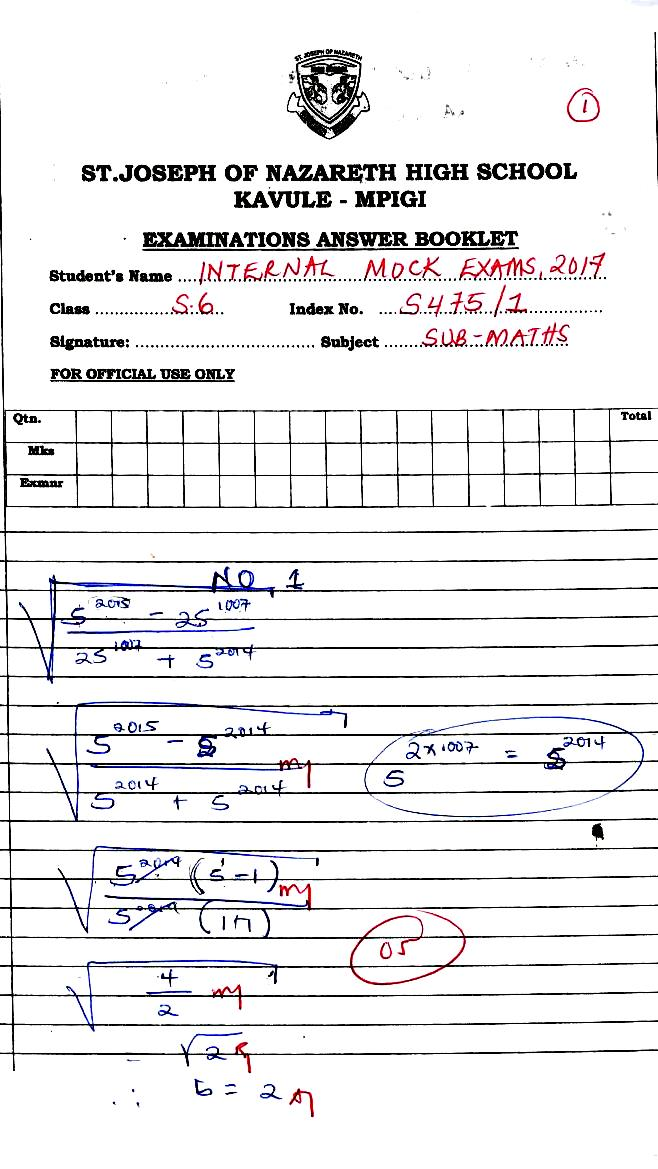 ST. JOSEPH OF NAZARETH
1
ST.JOSEPH OF NAZARETH HIGH SCHOOL
KAVULE - MPIGI
EXAMINATIONS ANSWER BOOKLET
Student's Name ... INTERNAL MOCK EXAMS, 2017
Class ... S.6 Index No. ... S475/1
Signature: ... Subject ... SUB-MATHS
FOR OFFICIAL USE ONLY
Qtn. Total
Mks
Exmnr
NO. 1
√((5^2015 - 25^1007) / (25^1007 + 5^2014))
√((5^2015 - 5^2014) / (5^2014 + 5^2014)) M1
5^(2×1007) = 5^2014
√((5^2014 (5^1 - 1)) / (5^2014 (1+1))) M1
05
√(4/2) M1
= √2 B1
∴ b = 2 A1